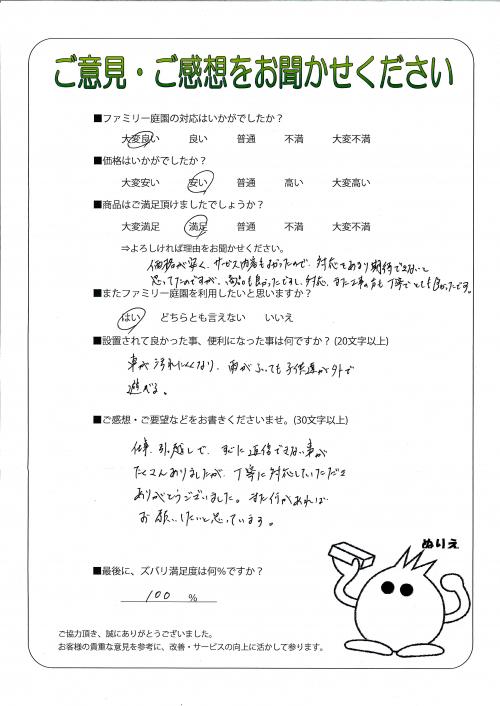 ご意見・ご感想をお聞かせください
■ファミリー庭園の対応はいかがでしたか？
大変良い 良い 普通 不満 大変不満
■価格はいかがでしたか？
大変安い 安い 普通 高い 大変高い
■商品はご満足頂けましたでしょうか？
大変満足 満足 普通 不満 大変不満
⇒よろしければ理由をお聞かせください。
価格が安く、サービス内容もよかったので、対応もあまり期待できないと
思ってたのですが、商品も良かったですし、対応、また工事の方も丁寧でとても良かったです。
■またファミリー庭園を利用したいと思いますか？
はい どちらとも言えない いいえ
■設置されて良かった事、便利になった事は何ですか？ (20文字以上)
車が汚れにくくなり、雨がふっても子供達が外で
遊べる。
■ご感想・ご要望などをお書きくださいませ。(30文字以上)
仕事、引っ越しで、すぐに返信できない事が
たくさんありましたが、丁寧に対応していただき
ありがとうございました。また何かあれば
お願いしたいと思っています。
ぬりえ
■最後に、ズバリ満足度は何%ですか？
100 %
ご協力頂き、誠にありがとうございました。
お客様の貴重な意見を参考に、改善・サービスの向上に活かして参ります。